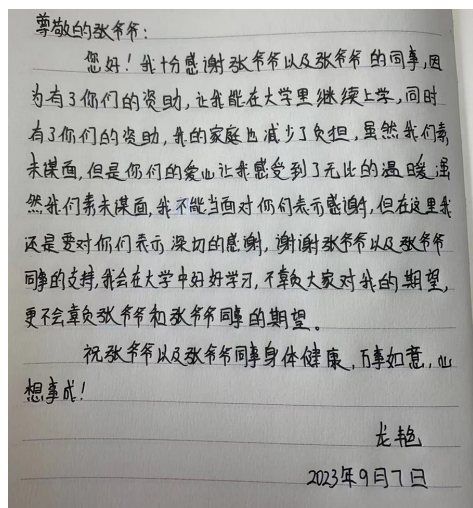 尊敬的张爷爷:
您好!我十分感谢张爷爷以及张爷爷的同事,因
为有了你们的资助,让我能在大学里继续上学,同时
有了你们的资助,我的家庭也减少了负担,虽然我们素
未谋面,但是你们的爱心让我感受到了无比的温暖虽
然我们素未谋面,我不能当面对你们表示感谢,但在这里我
还是要对你们表示深切的感谢,谢谢张爷爷以及张爷爷
同事的支持,我会在大学中好好学习,不辜负大家对我的期望,
更不会辜负张爷爷和张爷爷同事的期望。
祝张爷爷以及张爷爷同事身体健康,万事如意,心
想事成!
龙艳
2023年9月7日